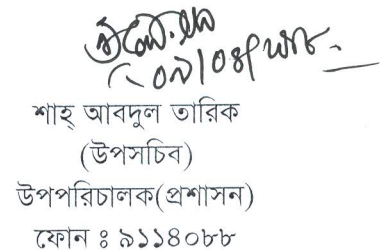 শাহ্ আবদুল তারিক
(উপসচিব)
উপপরিচালক(প্রশাসন)
ফোন ঃ ৯১১৪০৮৮